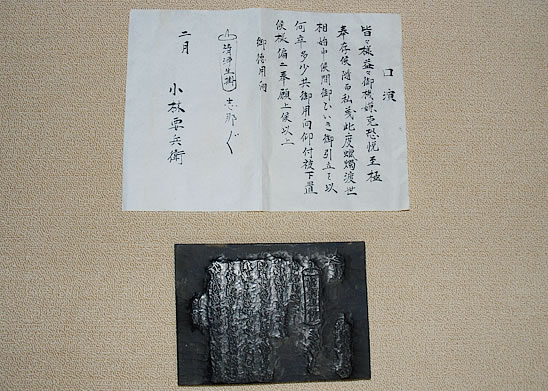 口演
皆々様益々御機嫌克恐悦至極
奉存候随而私義此度蝋燭渡世
相始申候間御ひいき御引立を以
何卒多少共御用向仰付被下置
候様偏ニ奉願上候以上
御借用向
清浄生掛 志那ぐ
二月 小林要兵衛